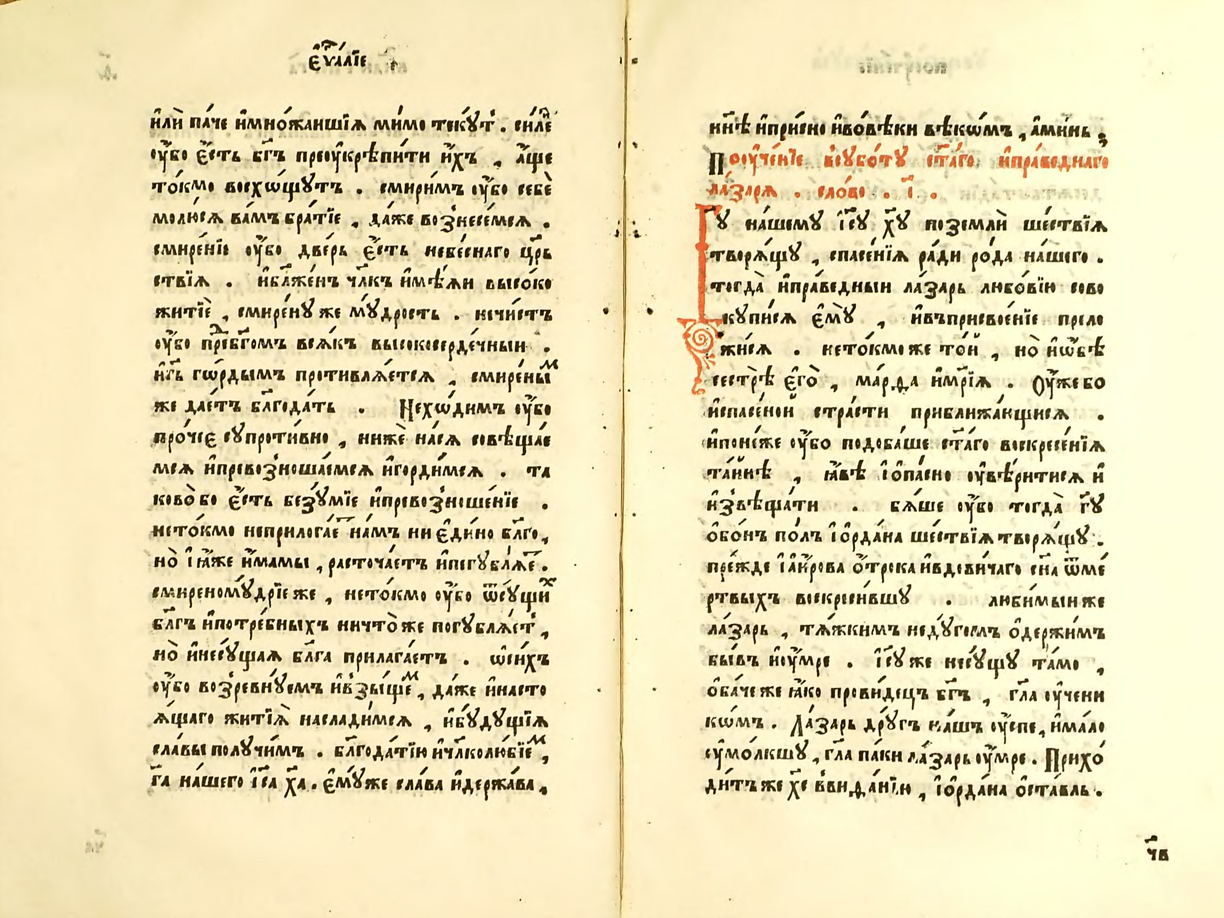 є҆ѵⷢ҇лїе
и҆лѝ па́че и҆мно́жаишїѧ ми́мо текꙋ́тъ . си́ленъ
ᲂу҆́бо є҆́сть бг҃ъ преᲂу҆крѣпи́ти и҆́хъ , а҆́ще
то́кмо восхѡ́щꙋтъ . смири́мъ ᲂу҆́бо себѐ
молю́сѧ ва́мъ бра́тїе , да́же вознесе́мсѧ .
смире́нїе ᲂу҆́бо две́рь є҆́сть небе́снаго црⷭ҇
ствїѧ . и҆бл҃же́нъ чл҃къ и҆мѣ́ѧи высоко
житїѐ , смире́нꙋ же мꙋ́дрость . нечи́стъ
ᲂу҆́бо преⷣбг҃омъ всѧ́къ высокосерде́чныи .
и҆гь го́рдымъ противлѧ́етсѧ , смире́ныⷨ
же дае́тъ блгⷣть . Не хѡ́димъ ᲂу҆́бо
про́чее сꙋпроти́вно , нижѐ на́сѧ совѣща́е
мсѧ и҆превозноша́емсѧ и҆горди́мсѧ . та
ково́ бо є҆́сть безꙋ́мїе и҆превозноше́нїе .
нето́кмо неприлога́етъ на́мъ ни є҆ди́но бл҃го ,
но̀ і҆ ꙗ҆́же и҆́мамы , расточа́етъ и҆погꙋблѧ́етъ .
смиреномꙋ́дрїе же , нето́кмо ᲂу҆́бо ѿсꙋ́щиⷯ
бл҃гъ и҆потре́бныхъ ничто́ же погꙋблѧ́етъ ,
но̀ и҆несꙋ́щаѧ бл҃га прилага́етъ . ѡ҆си́хъ
ᲂу҆́бо возревнꙋ́емъ и҆взы́щеⷨ , да́же и҆насто
ѧ́щаго житїѧ̀ наслади́мсѧ , и҆бꙋ́дꙋщїѧ
сла́вы полꙋчи́мъ . блгⷣтїю и҆чл҃колю́бїеⷨ ,
га҃ на́шего і҆са҃ ха҃ . є҆мꙋ́же сла́ва и҆держа́ва ,
ни҃нѣ и҆при́сно и҆во́вѣки вѣкѡ́мъ , а҆ми́нь .
Поᲂуче́нїе всꙋбо́тꙋ ст҃а́го и҆пра́веднаго
ла́зарѧ . сло́во . і҃ .
Гꙋ҃ на́шемꙋ і҆сꙋ҃ хꙋ҃ поземлѝ ше́ствїѧ
творѧ́щꙋ , спасе́нїѧ ра́ди ро́да на́шего .
тогда̀ и҆пра́ведныи ла́зарь любо́вїю сово
кꙋпи́сѧ є҆мꙋ̀ , и҆въприсвое́нїе прело
жи́сѧ . нето́кмо же то́й , но̀ и҆ѻ҆́бѣ
сестрѣ̀ є҆гѡ̀ , ма́рѳа и҆мр҃їѧ . Ѹ҆́же бо
и҆спасе́ной стра́сти приближа́ющисѧ .
и҆поне́же ᲂу҆́бо подоба́ше ст҃а́го воскресе́нїѧ
та́инѣ , ꙗ҆́вѣ і҆ ѻ҆па́сно ᲂу҆вѣ́ритисѧ и҆
и҆звѣща́ти . бѧ́ше ᲂу҆́бо тогда̀ гꙋ҃
ѻ҆бо́нъ по́лъ і҆ѻрда́на ше́ствїѧ творѧ́щꙋ .
пре́жде і҆аи́рова ѻ҆́трока и҆вдови́чаго сн҃а ѿме
ртвыхъ воскреси́вшꙋ . люби́мыи же
ла́зарь , тѧ́жкимъ недꙋ́гомъ ѻ҆держи́мъ
бы́въ и҆ᲂу́мре . і҆сꙋ҃ же несꙋ́щꙋ та́мо ,
ѻ҆ба́че же ꙗ҆́ко прови́децъ бг҃ъ , гл҃а ᲂу҆чени
кѡ́мъ . Ла́зарь дрꙋ́гъ на́шъ ᲂу҆́спе , и҆ма́ло
ᲂу҆мо́лкшꙋ , гл҃а па́ки ла́зарь ᲂу҆́мре . Прихо́
дитъ же хс҃ ввиѳа́нїю , і҆ѻрда́на ѻ҆ста́вль .
ч҃в